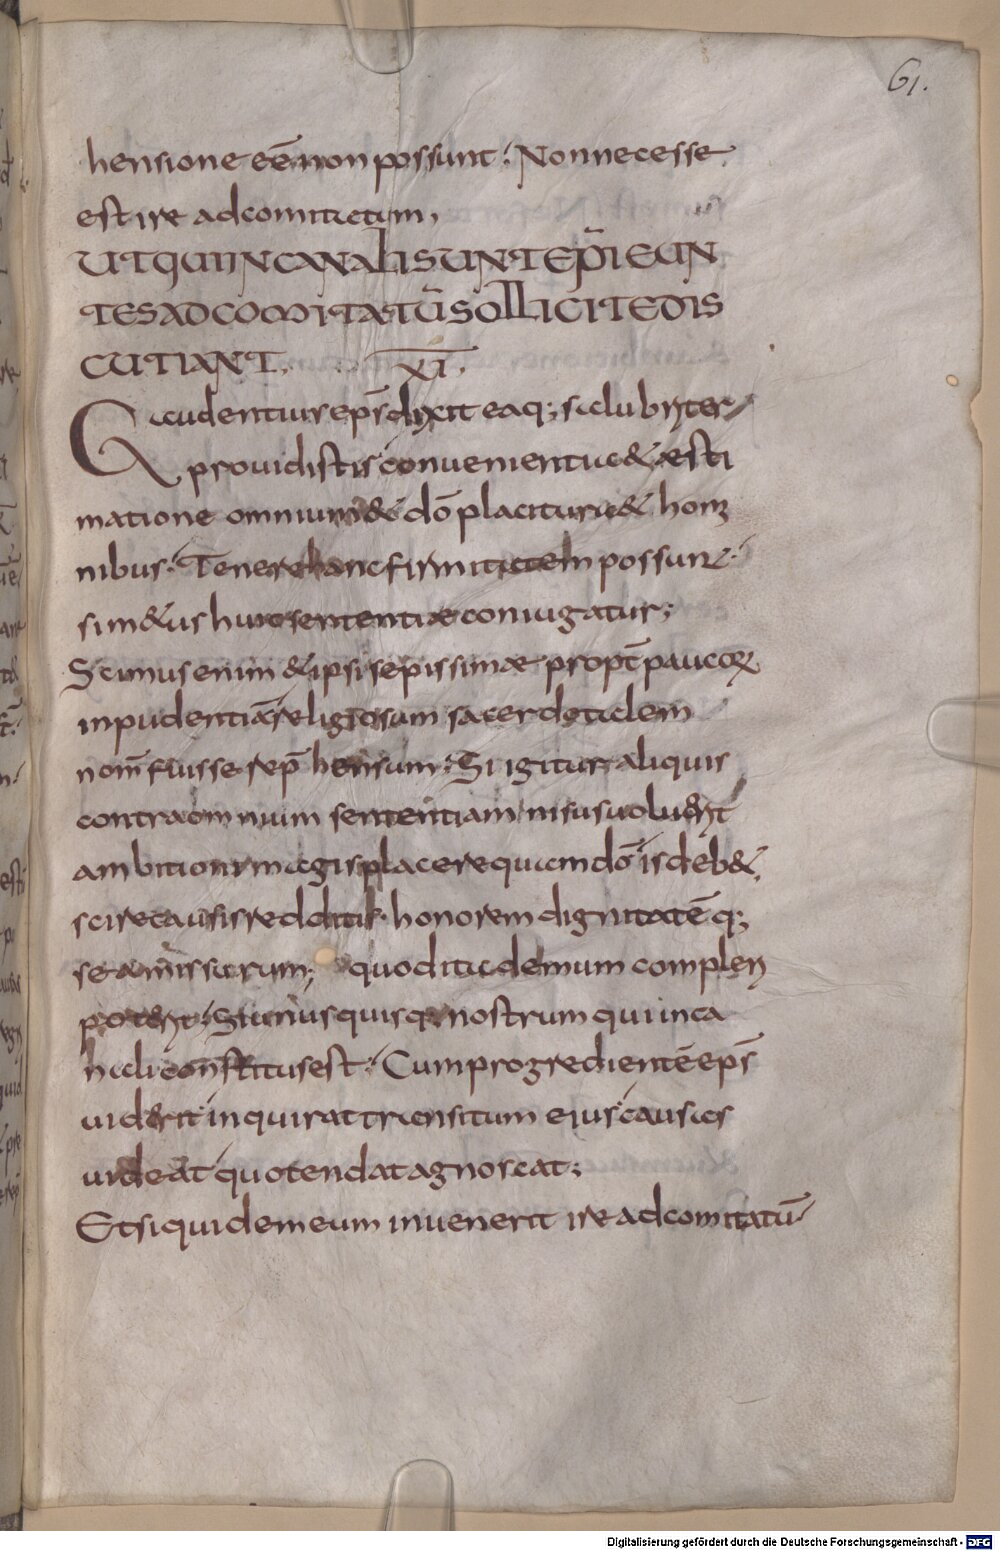 61.
hensione eē non possunt; Non necesse
est ire ad comitatum,
UT QUI IN CANALI SUNT EP̄I EUN
TES AD COMITATŪ SOLLICITE DIS
CUTIANT. XI.
Gaudentius ep̄s dixit ea q; salubriter
prouidistis conuenientia & esti
matione omnium & dō placitura & homi
nibus. Tenere hanc firmitatem possunt.
si m&us huic sententiæ coniugatur;
Scimus enim & ipsi sepissimæ propt̄ paucoꝝ
inpudentiā religiosum sacerdotalem
nom̄ fuisse rep̄hensum; Si igitur aliquis
contra omnium sententiam nisus uoluerit
ambitioni magis placere quam dō is deb&
scire causis redditis. honorem dignitatē q;
se amissurum; quod ita demum compleri
poterit; Si unus quis q; nostrum qui in ca
nali constitus est; Cum progredientē ep̄s
uiderit inquirat transitum eius causas
uideat quo tendat agnoscat;
Et si quidem eum inuenerit ire ad comitatū
Digitalisierung gefördert durch die Deutsche Forschungsgemeinschaft - DFG